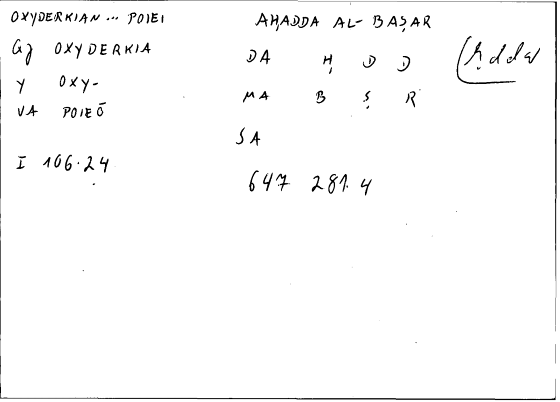 OXYDERKIAN ... POIEI
Gj OXYDERKIA
Y OXY-
VA POIEŌ
I 106.24
AḤADDA AL-BAṢAR
DA Ḥ D D
MA B Ṣ R
SA
647 281.4
(ḥdda